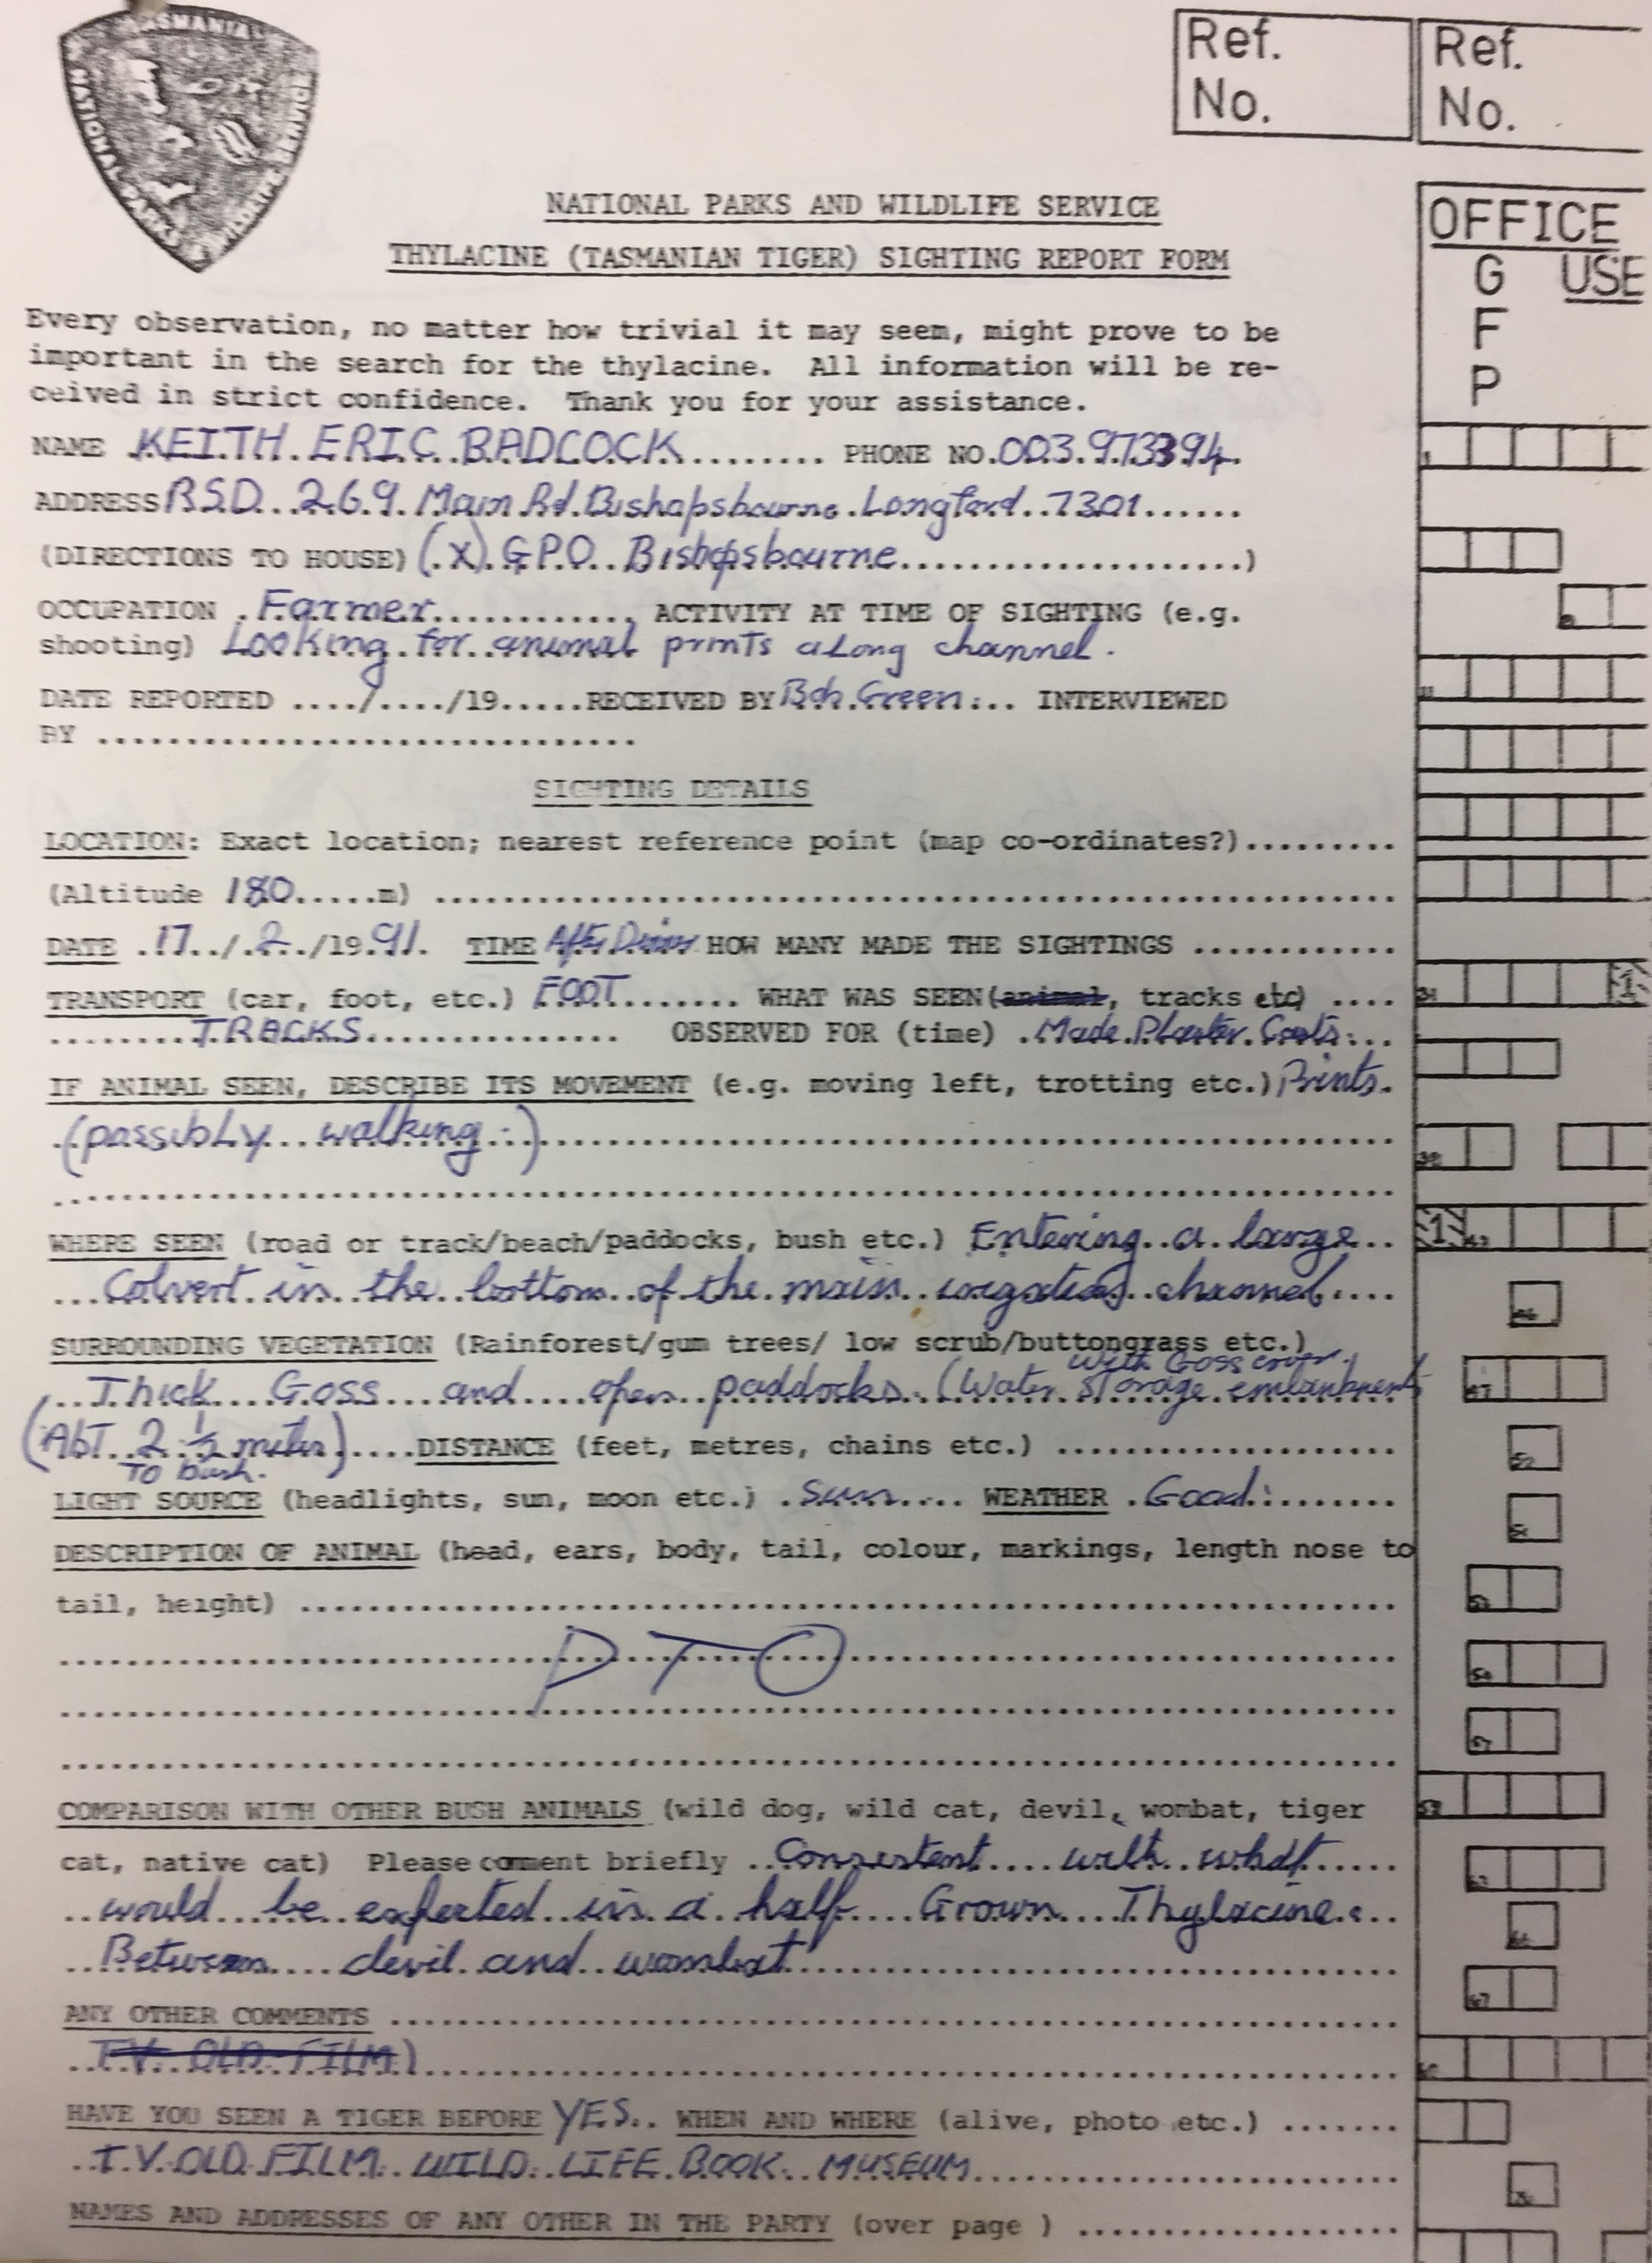 TASMANIAN
NATIONAL PARKS & WILDLIFE SERVICE
Ref.
No.
Ref.
No.
NATIONAL PARKS AND WILDLIFE SERVICE
THYLACINE (TASMANIAN TIGER) SIGHTING REPORT FORM
OFFICE
G USE
F
P
Every observation, no matter how trivial it may seem, might prove to be
important in the search for the thylacine. All information will be re-
ceived in strict confidence. Thank you for your assistance.
NAME KEITH ERIC BADCOCK ........ PHONE NO. 003.973394.
ADDRESS R.S.D. 269 Main Rd. Bishopsbourne Longford 7301......
(DIRECTIONS TO HOUSE) (X) GPO Bishopsbourne....................)
OCCUPATION Farmer............ ACTIVITY AT TIME OF SIGHTING (e.g.
shooting) Looking for animal prints aLong channel.
DATE REPORTED ..../..../19.....RECEIVED BY Bob Green... INTERVIEWED
BY ...............................
SIGHTING DETAILS
LOCATION: Exact location; nearest reference point (map co-ordinates?).........
(Altitude 180.....m) ........................................................
DATE 17../.2../19.91. TIME After Dinner HOW MANY MADE THE SIGHTINGS ............
TRANSPORT (car, foot, etc.) FOOT........ WHAT WAS SEEN(animal, tracks etc) ....
.........TRACKS............... OBSERVED FOR (time) .Made Plaster Casts...
IF ANIMAL SEEN, DESCRIBE ITS MOVEMENT (e.g. moving left, trotting etc.) Prints.
(possibLy walking.)..................................................
................................................................................
WHERE SEEN (road or track/beach/paddocks, bush etc.) Entering a large..
...Colvert in the bottom of the main irrigation channel....
SURROUNDING VEGETATION (Rainforest/gum trees/ low scrub/buttongrass etc.)
with Goss cover.
...Thick Goss and open paddocks (Water storage embankment
(AbT 2 ½ meter)....DISTANCE (feet, metres, chains etc.) ....................
To bush.
LIGHT SOURCE (headlights, sun, moon etc.) .Sun.... WEATHER .Good.........
DESCRIPTION OF ANIMAL (head, ears, body, tail, colour, markings, length nose to
tail, height) ..................................................................
PTO
................................................................................
................................................................................
COMPARISON WITH OTHER BUSH ANIMALS (wild dog, wild cat, devil, wombat, tiger
cat, native cat) Please comment briefly ..Consestent....with what......
..would be expected in a half Grown Thylacine...
..Between devil and wombat...................................
ANY OTHER COMMENTS ............................................................
..T.V. OLD FILM)............................................................
HAVE YOU SEEN A TIGER BEFORE YES.. WHEN AND WHERE (alive, photo etc.) .......
..T.V. OLD FILM. WILD LIFE BOOK MUSEUM.........................
NAMES AND ADDRESSES OF ANY OTHER IN THE PARTY (over page ) ...................